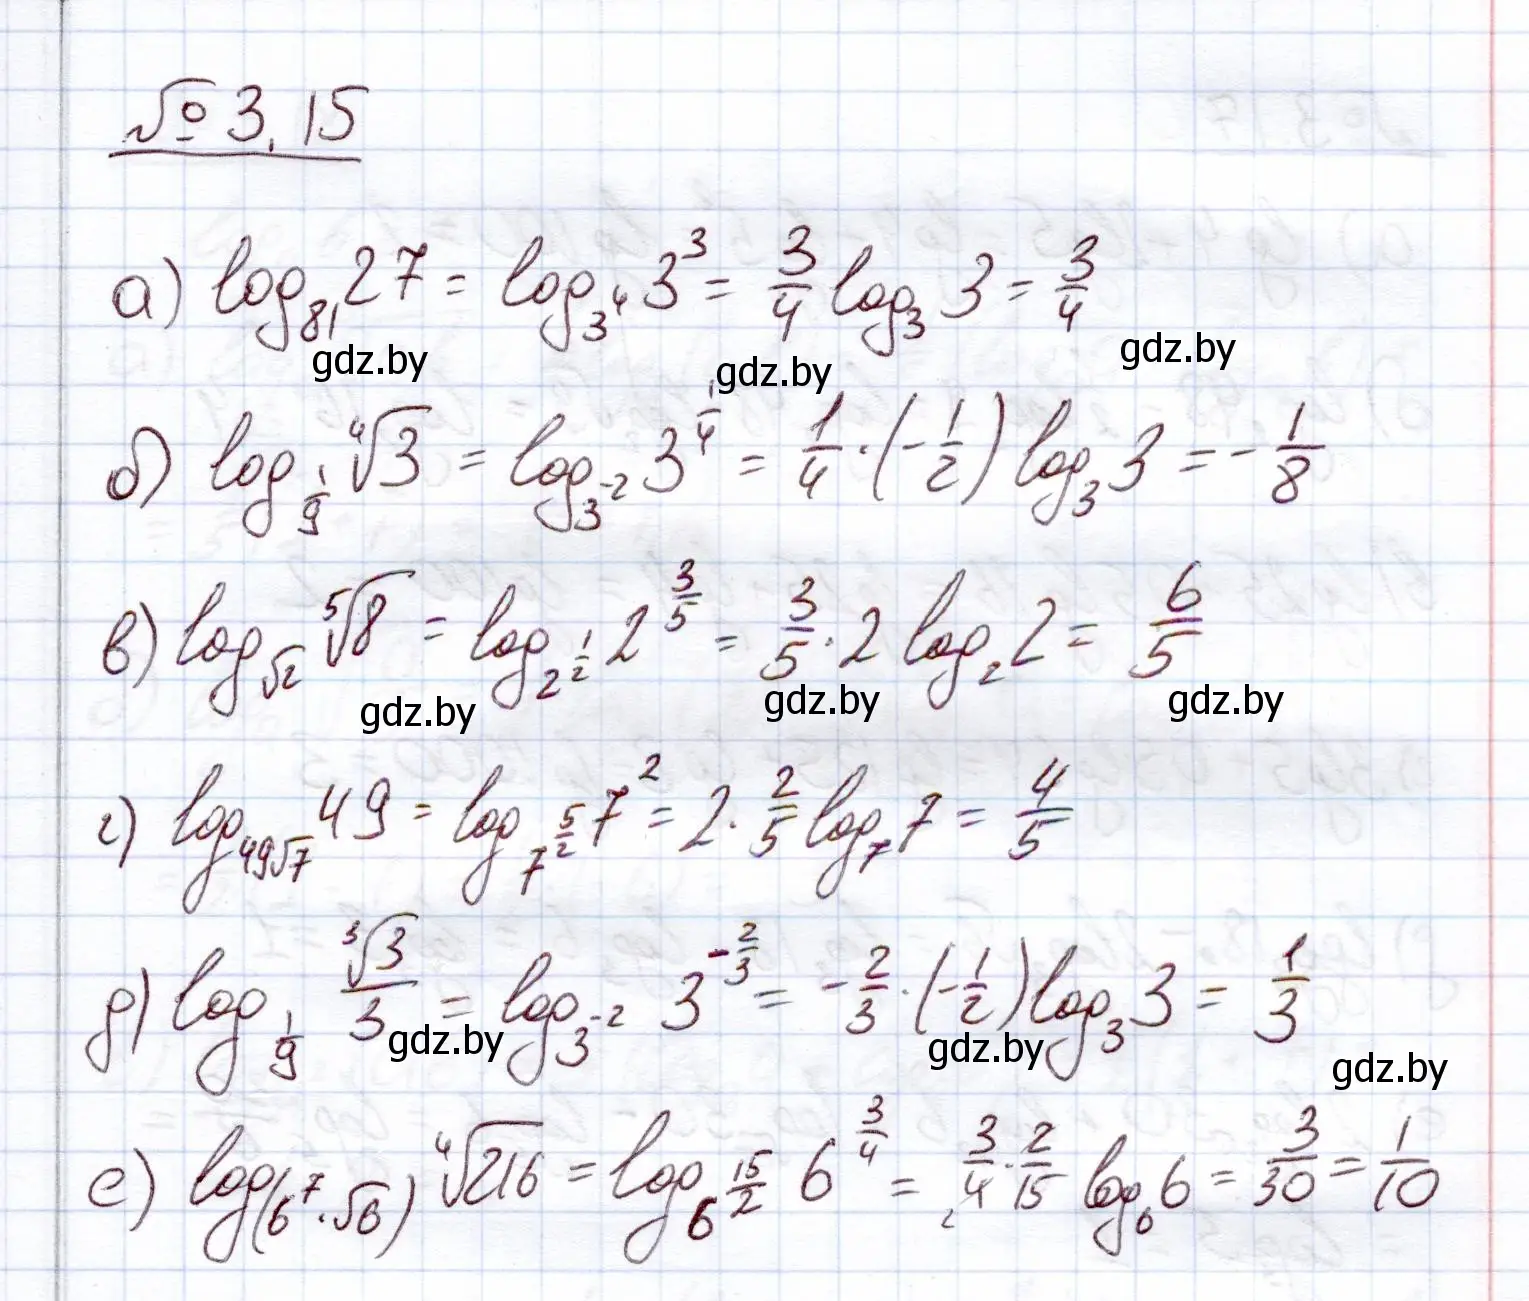 № 3.15
а) log₈₁ 27 = log_{3⁴} 3³ = 3/4 log₃ 3 = 3/4
gdz.by gdz.by gdz.by
б) log_{1/9} ⁴√3 = log_{3⁻²} 3^{1/4} = 1/4 · (-1/2) log₃ 3 = -1/8
в) log_{√2} ⁵√8 = log_{2^{1/2}} 2^{3/5} = 3/5 · 2 log₂ 2 = 6/5
gdz.by gdz.by gdz.by
г) log_{49√7} 49 = log_{7^{5/2}} 7² = 2 · 2/5 log₇ 7 = 4/5
д) log_{1/9} ³√3/3 = log_{3⁻²} 3^{-2/3} = -2/3 · (-1/2) log₃ 3 = 1/3
gdz.by gdz.by gdz.by
е) log_{(6⁷·√6)} ⁴√216 = log_{6^{15/2}} 6^{3/4} = 3/4 · 2/15 log₆ 6 = 3/30 = 1/10